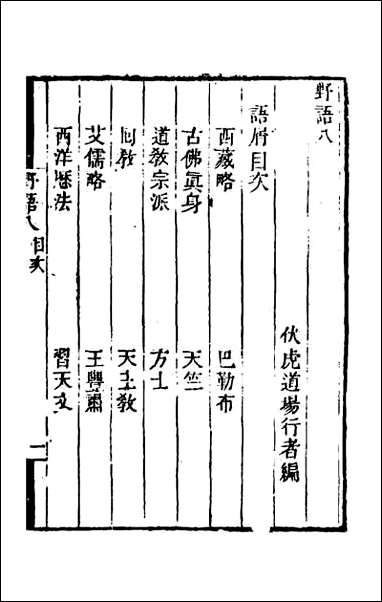 野語八
伏虎道場行者編
語屑目次
西藏略
巴勒布
古佛眞身
天竺
道敎宗派
方士
回敎
天主敎
艾儒略
王豐肅
西洋曆法
習天文
野語八 目次
一